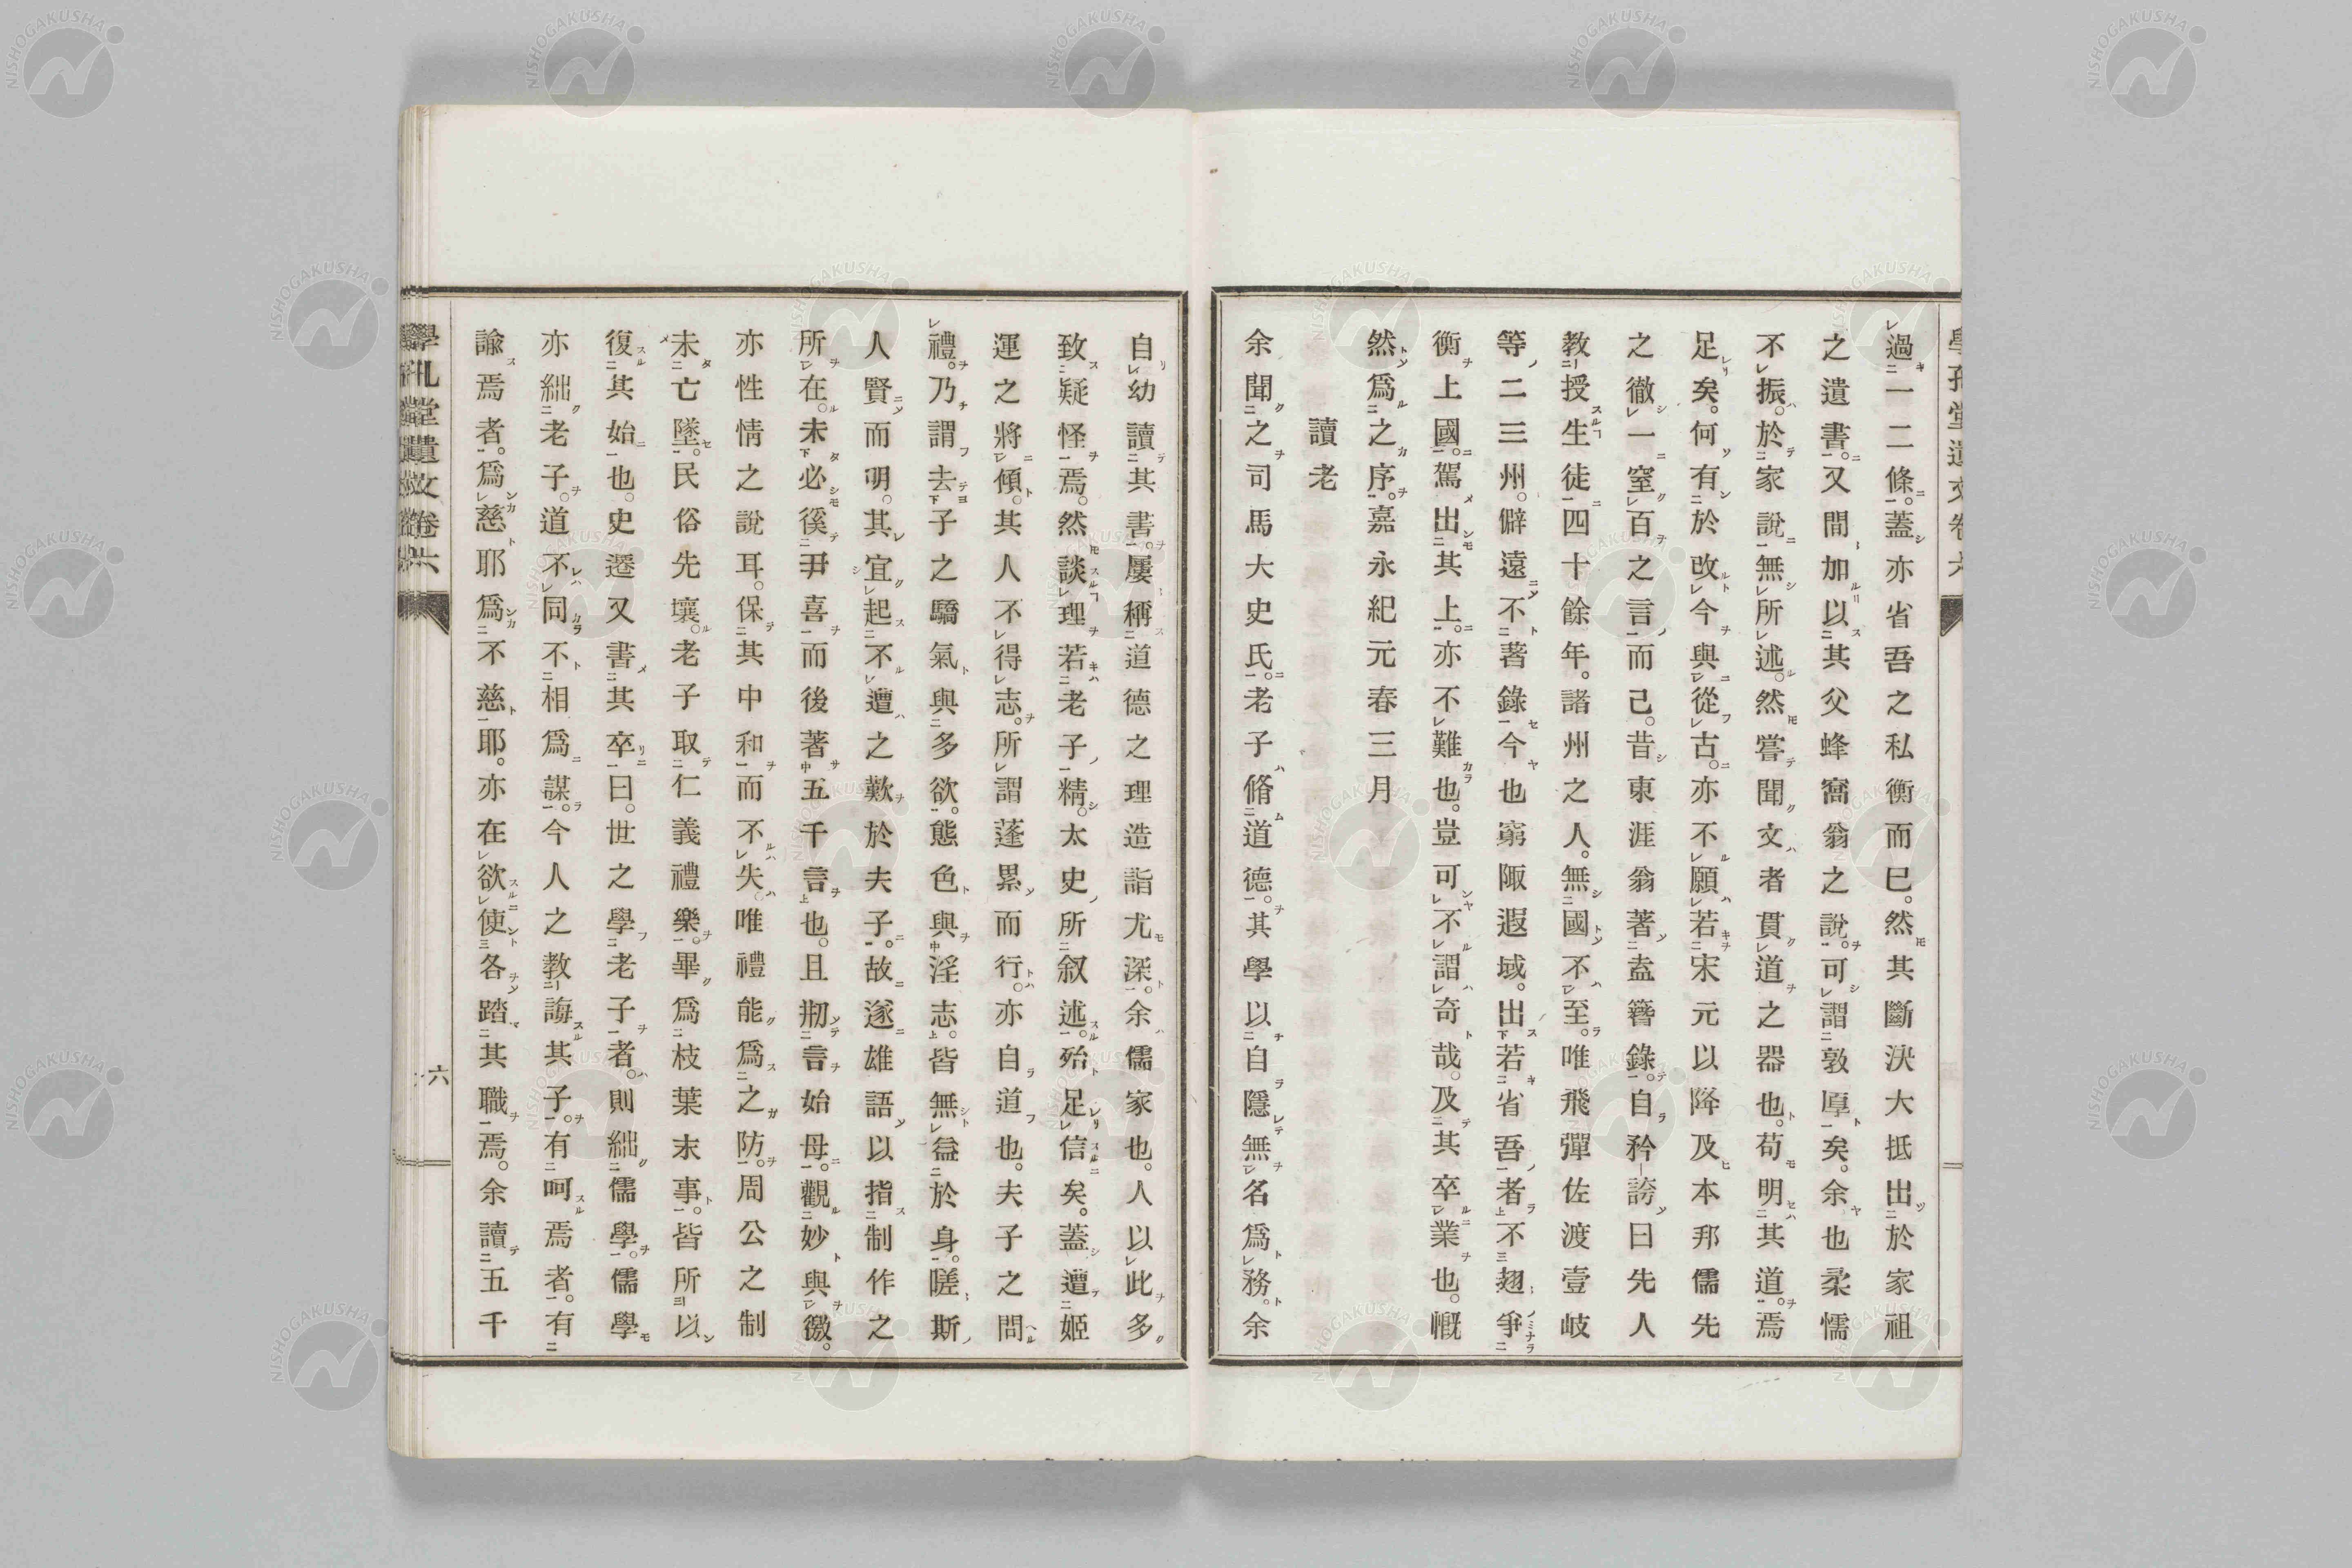 過一二條。蓋亦省吾之私衡而已。然其斷決大抵出於家祖
之遺書。又間加以其父蜂窩翁之說。可謂敦厚矣。余也柔懦
不振。於家說無所述。然嘗聞文者貫道之器也。苟明其道。焉
足矣。何有於改今與從古。亦不願若宋元以降及本邦儒先
之徹一窒百之言而已。昔東涯翁著盍簪錄。自矜誇曰先人
教授生徒四十餘年。諸州之人。無國不至。唯飛彈佐渡壹岐
等二三州。僻遠不著錄。今也窮陬遐域。出若省吾者不翅爭
衡上國。駕出其上。亦不難也。豈可不謂奇哉。及其卒業也。慨
然爲之序。嘉永紀元春三月
讀老
余聞之司馬大史氏。老子脩道德。其學以自隱無名爲務。余
自幼讀其書。屢稱道德之理造詣尤深。余儒家也。人以此多
致疑怪焉。然談理若老子精。太史所叙述。殆足信矣。蓋遭姬
運之將傾。其人不得志。所謂蓬累而行。亦自道也。夫子之問
禮。乃謂去子之驕氣與多欲。態色與淫志。皆無益於身。嗟斯
人賢而明。其宜起不遭之歎於夫子。故遂雄語以指制作之
所在。未必徯尹喜而後著五千言也。且刱言始母。觀妙與徼。
亦性情之說耳。保其中和而不失。唯禮能爲之防。周公之制
未亡墜。民俗先壞。老子取仁義禮樂。畢爲枝葉末事。皆所以
復其始也。史遷又書其卒曰。世之學老子者。則絀儒學。儒學
亦絀老子。道不同不相爲謀。今人之教誨其子。有呵焉者。有
諭焉者。爲慈耶爲不慈耶。亦在欲使各踏其職焉。余讀五千
學孔堂遺文卷六
六